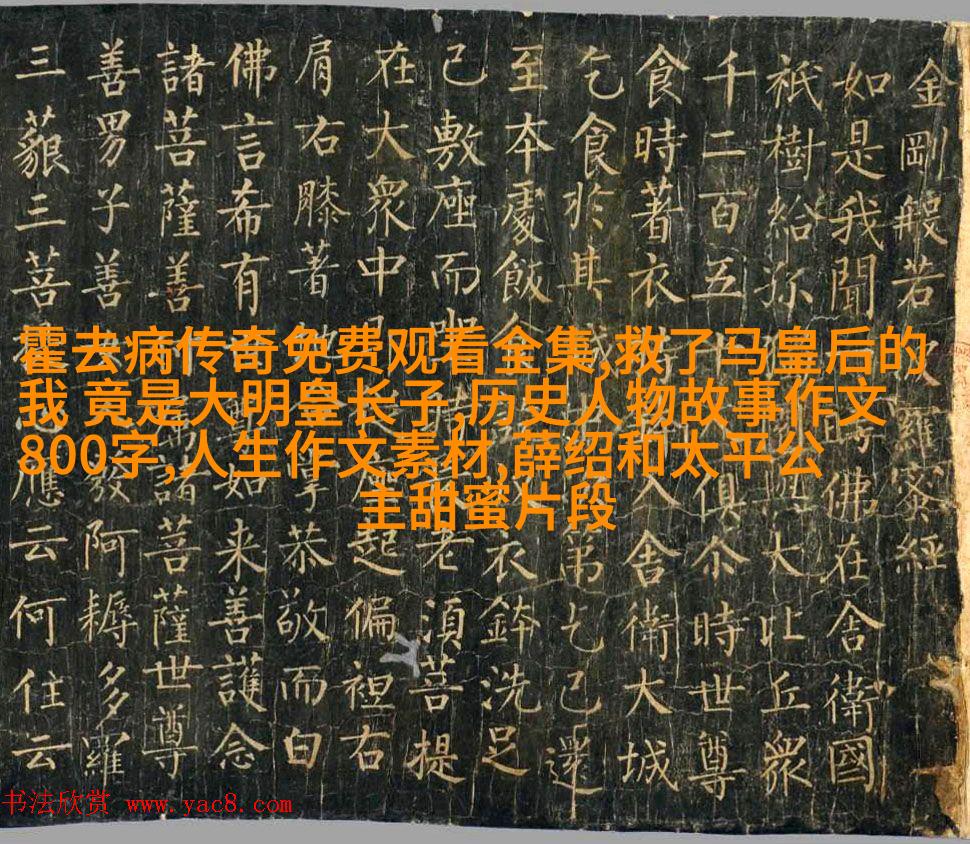 金剛般若羅蜜經
如是我聞時佛在舍衛國
祇樹給孤大比丘眾
千二百五十俱尒時世尊
食時著衣入舍衛大城
乞食於其城第乞已還
至本處飯食衣鉢洗足
已敷座而坐老須菩提
在大眾中座起偏袒右
肩右膝著掌恭敬而白
佛言希有如来善護念
諸菩薩善諸菩薩世尊
善男子善發阿耨多羅
三藐三菩應云何住云
霍去病传奇免费观看全集,救了马皇后的
我 竟是大明皇长子,历史人物故事作文
800字,人生作文素材,薛绍和太平公
主甜蜜片段
书法欣赏 www.yac8.com